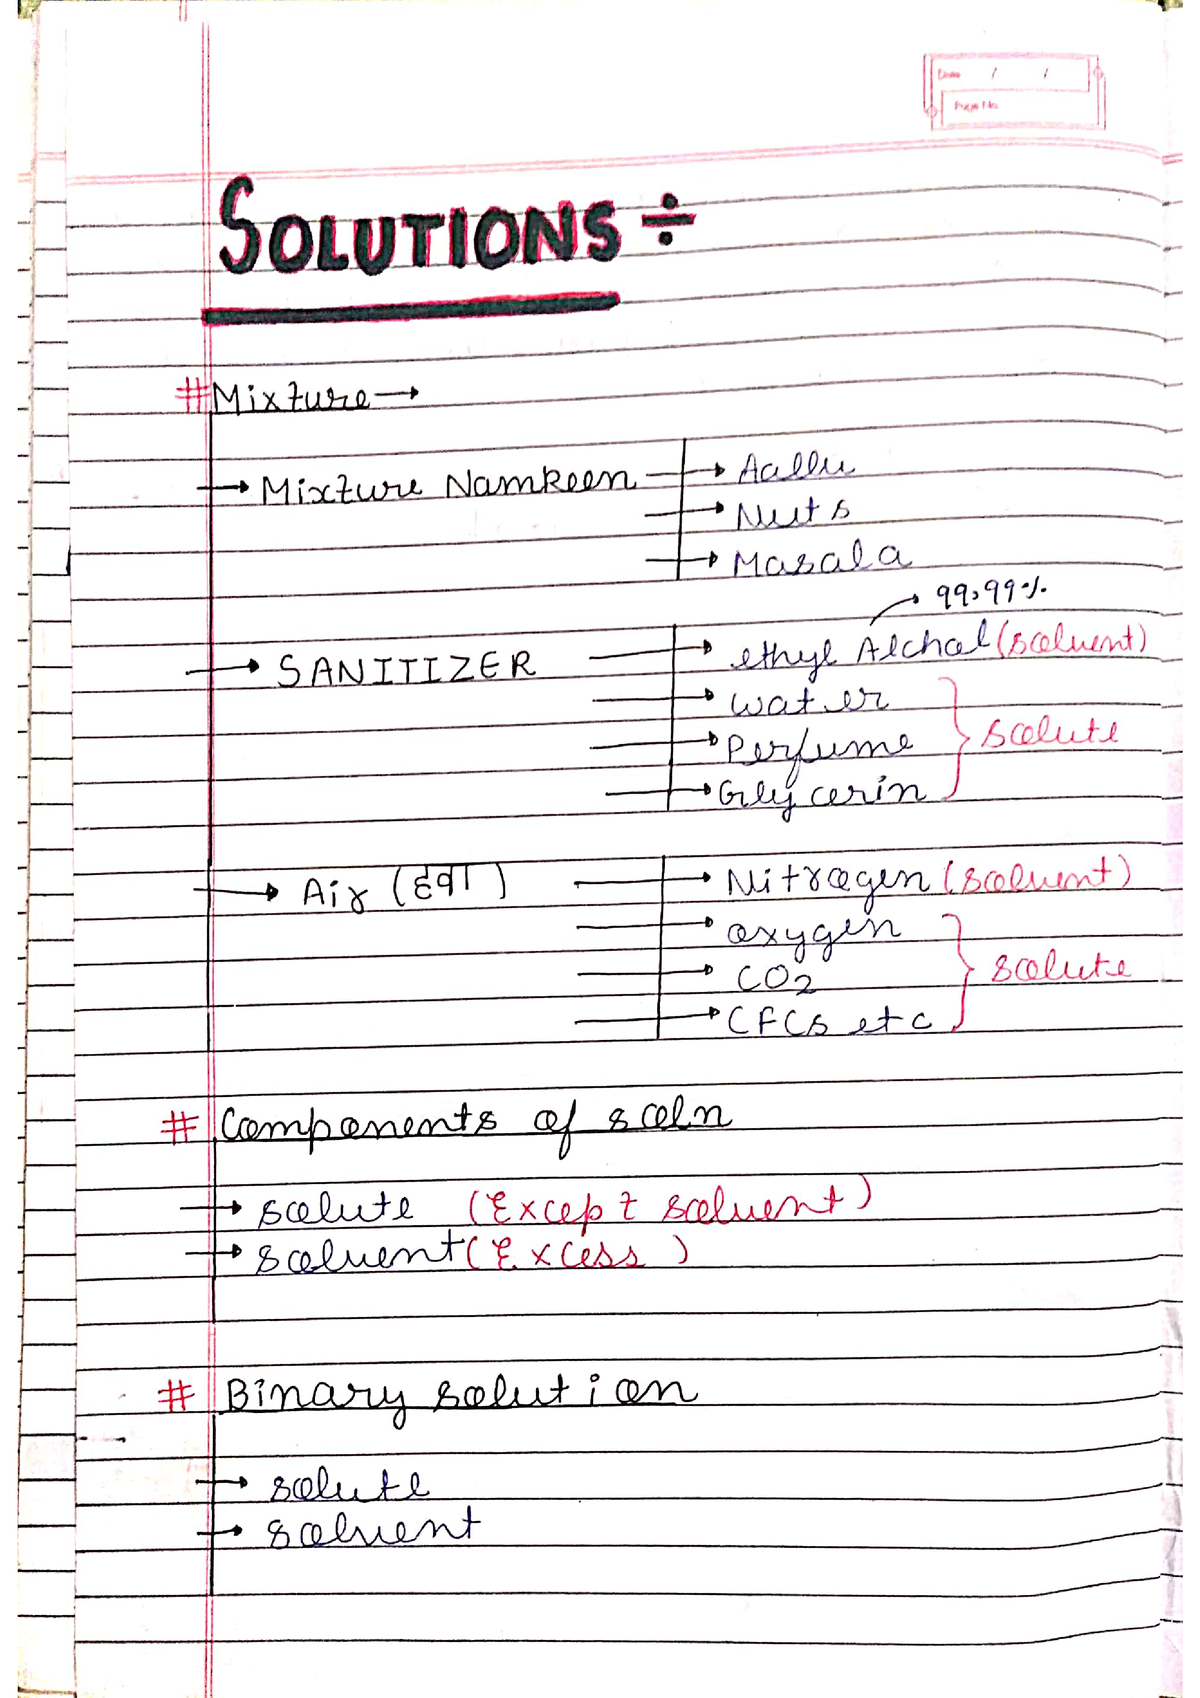 Date / /
Page No.
SOLUTIONS ÷
# Mixture →
→ Mixture Namkeen → Aallu
→ Nuts
→ Masala
→ 99.99%
→ SANITIZER → ethyl Alchol (solvent)
→ water
→ Perfume } solute
→ Glycerin
→ Air (हवा) → Nitrogen (solvent)
→ oxygen
→ CO2 } solute
→ CFCs etc
# Components of soln
→ solute (Except solvent)
→ solvent (Excess)
# Binary solution
→ solute
→ solvent